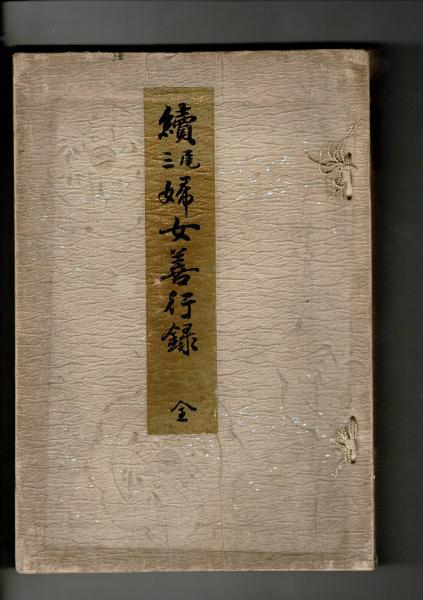 續尾三婦女善行録 全